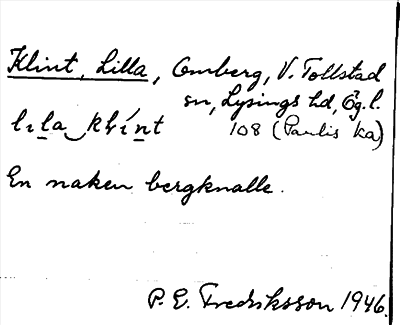 Klint, Lilla, Omberg, V. Tollstad
sn, Lysings hd, Ög. l.
lıla klínt 108 (Paulis ka)
En naken bergknalle.
P. E. Fredriksson 1946.